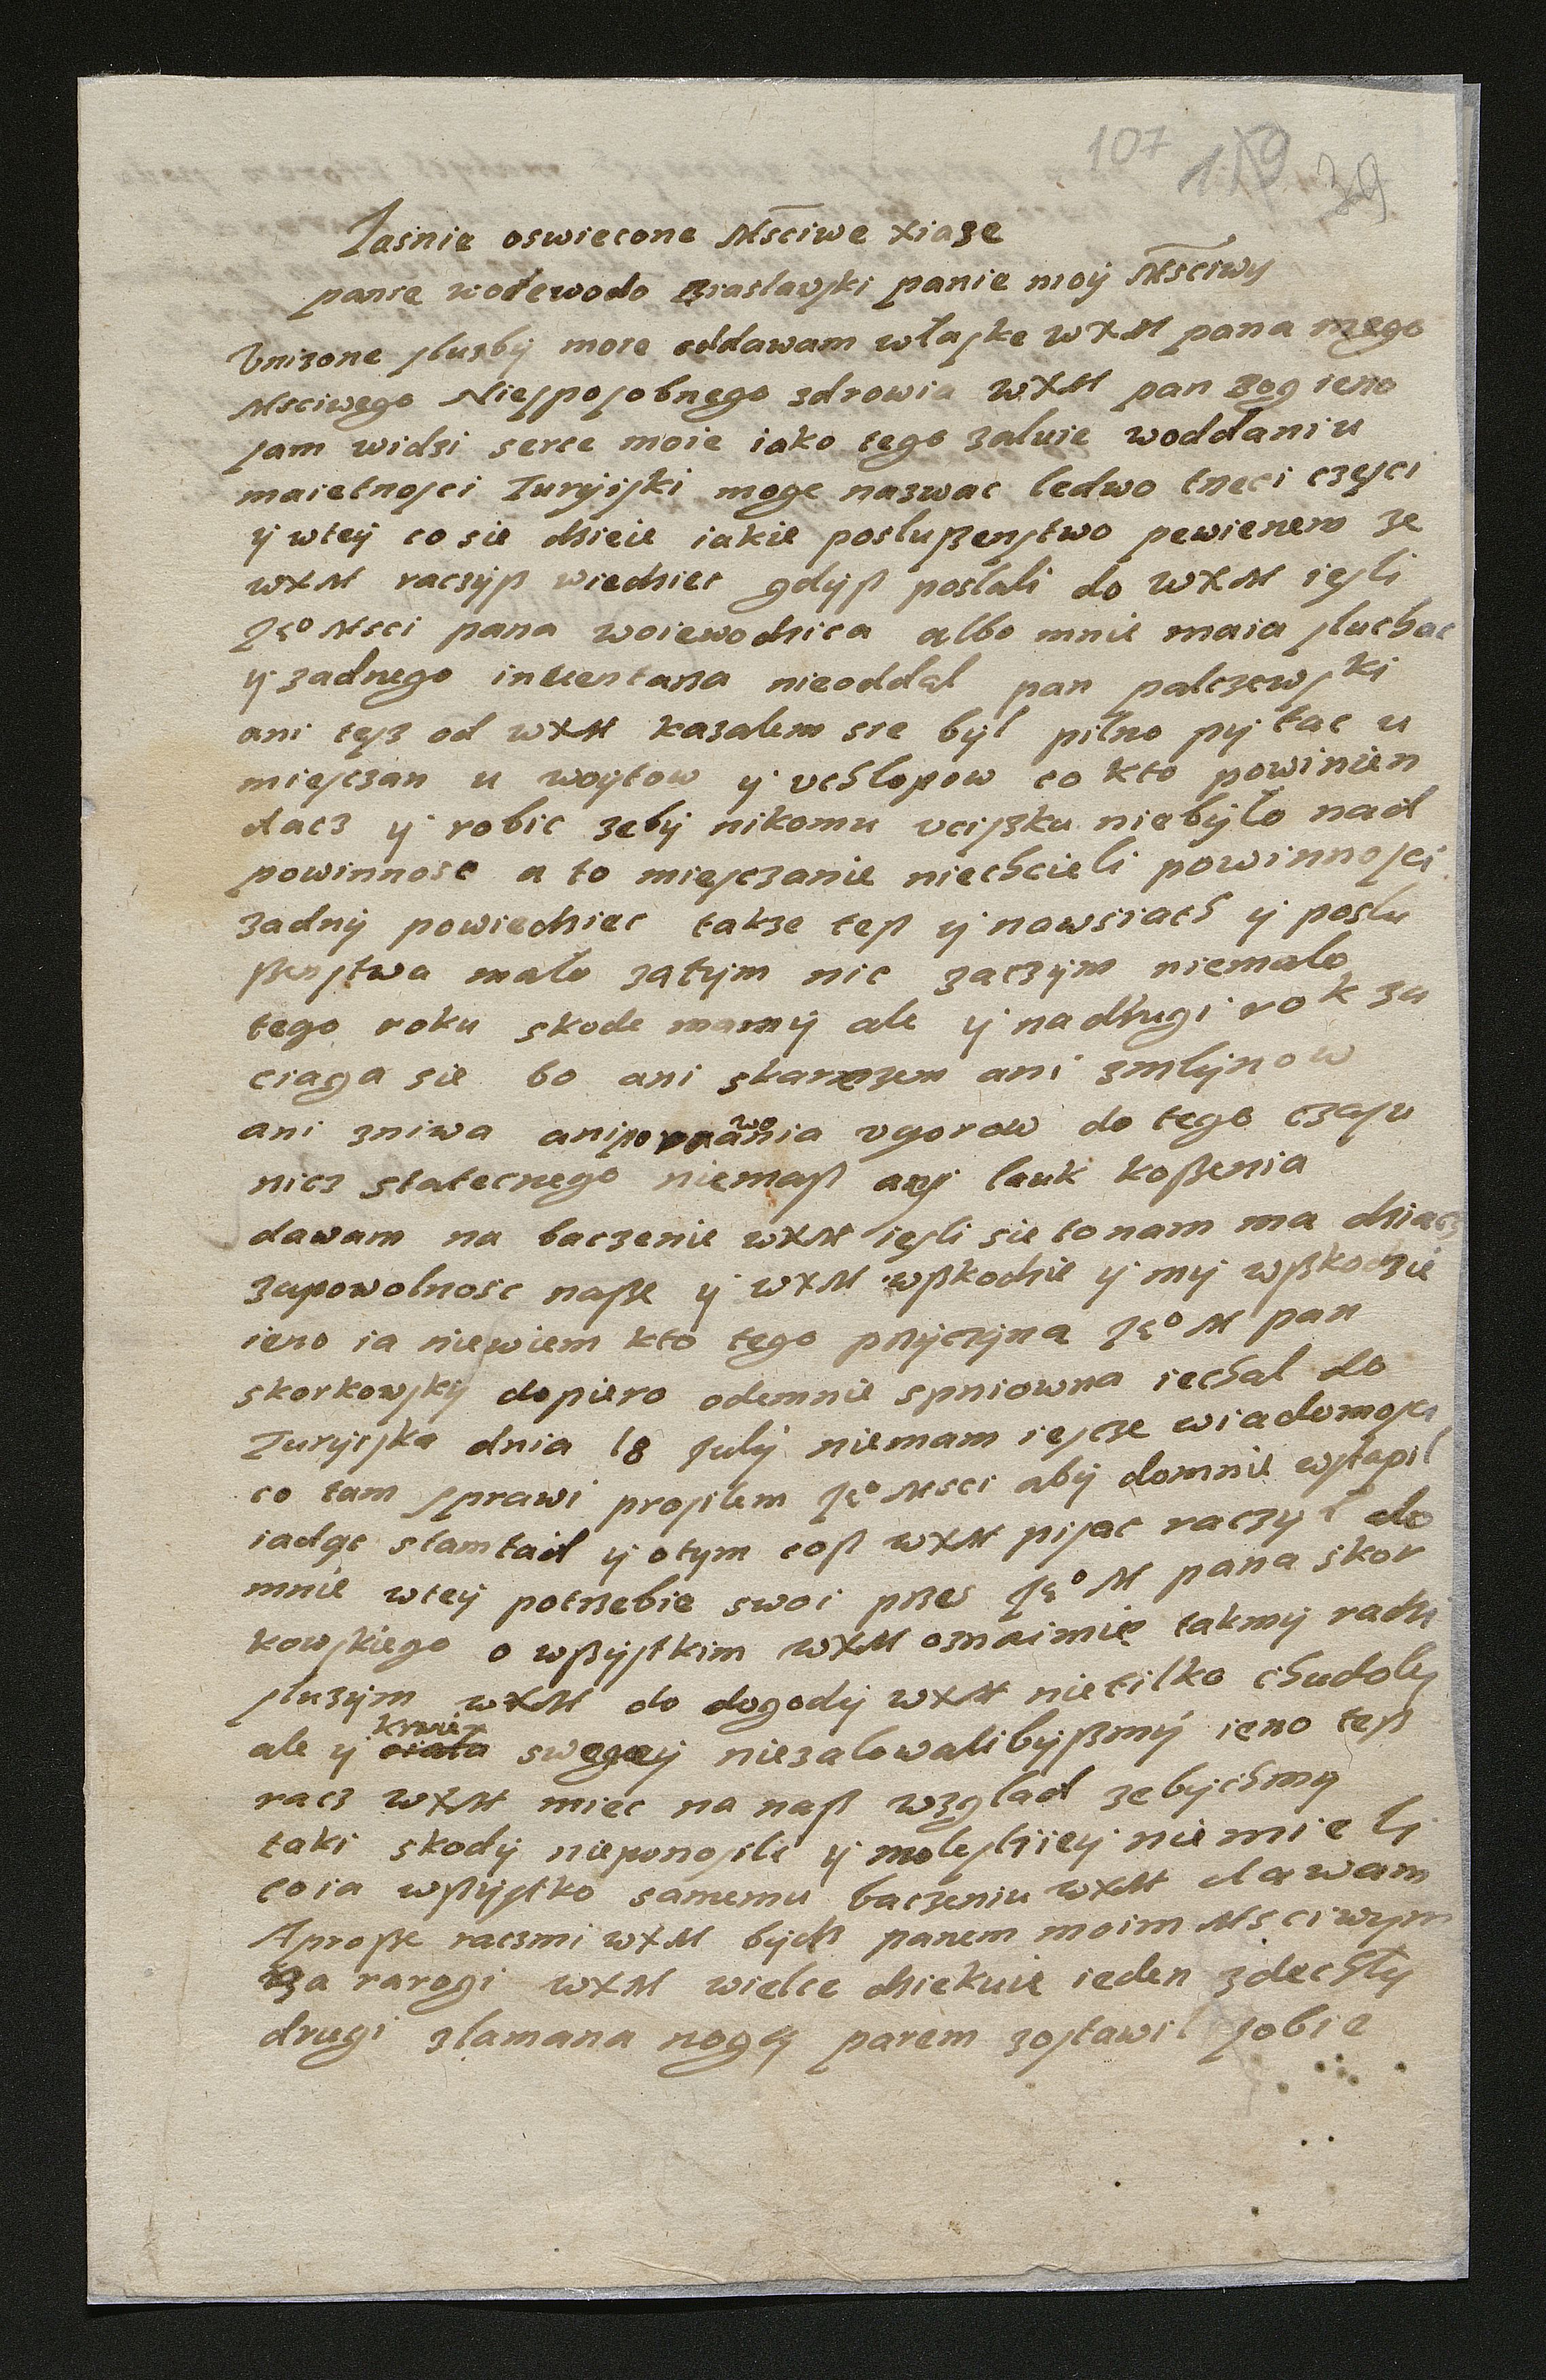 107 119 39
Iasnie oswiecone Msciwe xiaze
panie woiewodo Braslawski panie moy Msciwy
Vnizone sluzby moie oddawam wlaske WXM pana mego
Msciwego Niesposobnego zdrowia WXM pan Bog ieno
sam widzi serce moie iako tego zaluie woddaniu
maietnosci Turyiski moge nazwac ledwo trzeci części
y wtey co sie dzieie iakie posluszenstwo pewienem ze
WXM raczysz wiedziec gdysz poslali do WXM iesli
Je⁰ Msci pana woiewodzica albo mnie maia sluchac
y zadnego inwentarza nieoddal pan palczewski
ani tesz od WXM kazalem sie byl pilno pytac u
miesczan u woytow y vchlopow co kto powinien
dacz y robic zeby nikomu vcisku niebylo nad
powinnosc a to miesczanie niechcieli powinnosci
zadny powiedziec takze tesz y nawsiach y poslu
szenstwa malo zatym nic zaczym niemalo
tego roku skode mamy ale y nadrugi rok za
ciaga sie bo ani skarczem ani zmlynow
ani zniwa ani ugorow do tego czasu
nicz statecnego niemasz ani lauk koszenia
dawam na baczenie WXM iesli sie to nam ma dziacz
zapowolnosc nasze y WXM wszkodzie y my wszkodzie
ieno ia niewiem kto tego przyczyna Je⁰ M pan
skorkowsky dopiero odemnie spniowna iechal do
Turyiska dnia 18 July niemam iescze wiadomosci
co tam sprawi prosilem Je⁰ Msci aby domnie wstapil
iadąc stamtad y otym cosz WXM pisac raczyl do
mnie wtey potrzebie swoi przes Je⁰ M pana skor
kowskiego o wszystkim WXM oznaimie takmy radzi
sluzym WXM do dogody WXM nietilko chudoby
ale y krwie swegey niezalowalibyszmy ieno tesz
racz WXM miec na nasz wzglad zebychmy
taki skody nieponosili y molestiiey niemieli
co ia wszystko samemu baczeniu WXM dawam
A prosze raczmi WXM bydz panem moim Msciwym
Za rarogi WXM wielce dziekuie ieden zdechly
drugi zlamana nogą parem zostawil sobie